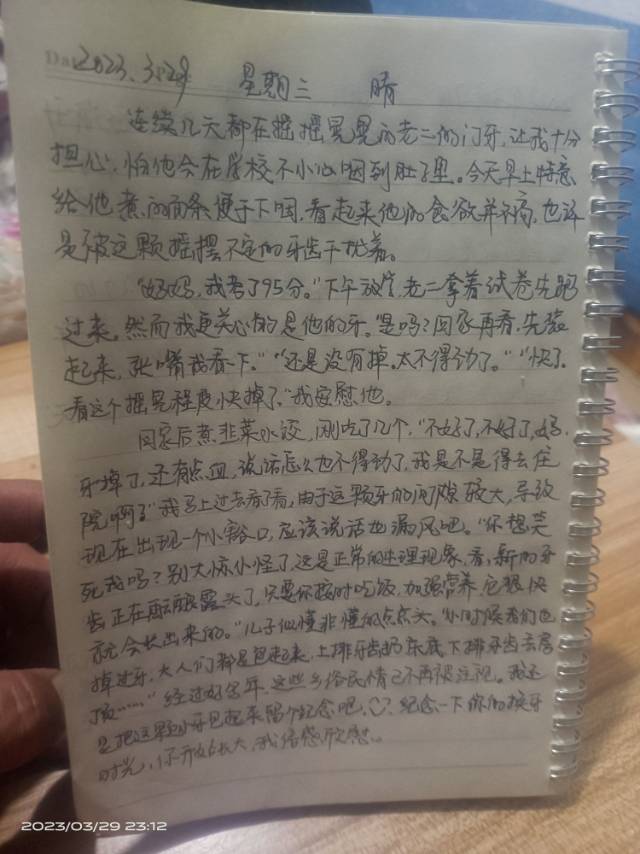 Da
2023.3.29 星期三 晴
连续几天都在摇摇晃晃的老二的门牙,让我十分
担心,怕他会在学校不小心咽到肚子里。今天早上特意
给他煮的面条便于下咽,看起来他的食欲并不高,也许
是被这颗摇摆不定的牙齿干扰着。
"妈妈,我考了95分。"下午放学,老二拿着试卷先跑
过来。然而我更关心的是他的牙。"是吗?回家再看,先装
起来,张嘴我看下。""还是没有掉。太不得劲了。""快了。
看这个摇晃程度快掉了。"我安慰他。
回家后煮韭菜水饺,刚吃了几个,"不好了,不好了,妈,
牙掉了,还有点血,说话怎么也不得劲了,我是不是得去住
院啊?"我马上过去看了看,由于这颗牙的间隙较大,导致
现在出现一个小豁口,应该说话也漏风吧。"你想笑
死我吗?别大惊小怪了,这是正常的生理现象,看,新的牙
齿正在酝酿露头了,只要你按时吃饭,加强营养,它很快
就会长出来的。"儿子似懂非懂的点点头。"小时候我们也
掉过牙,大人们都是包起来,上排牙齿扔床底,下排牙齿丢房
顶……"经过好多年,这些乡俗民情已不再被注视。我还
是把这颗小牙包起来留个纪念吧,♡纪念一下你的换牙
时光,你开始长大,我倍感欣慰。
2023/03/29 23:12